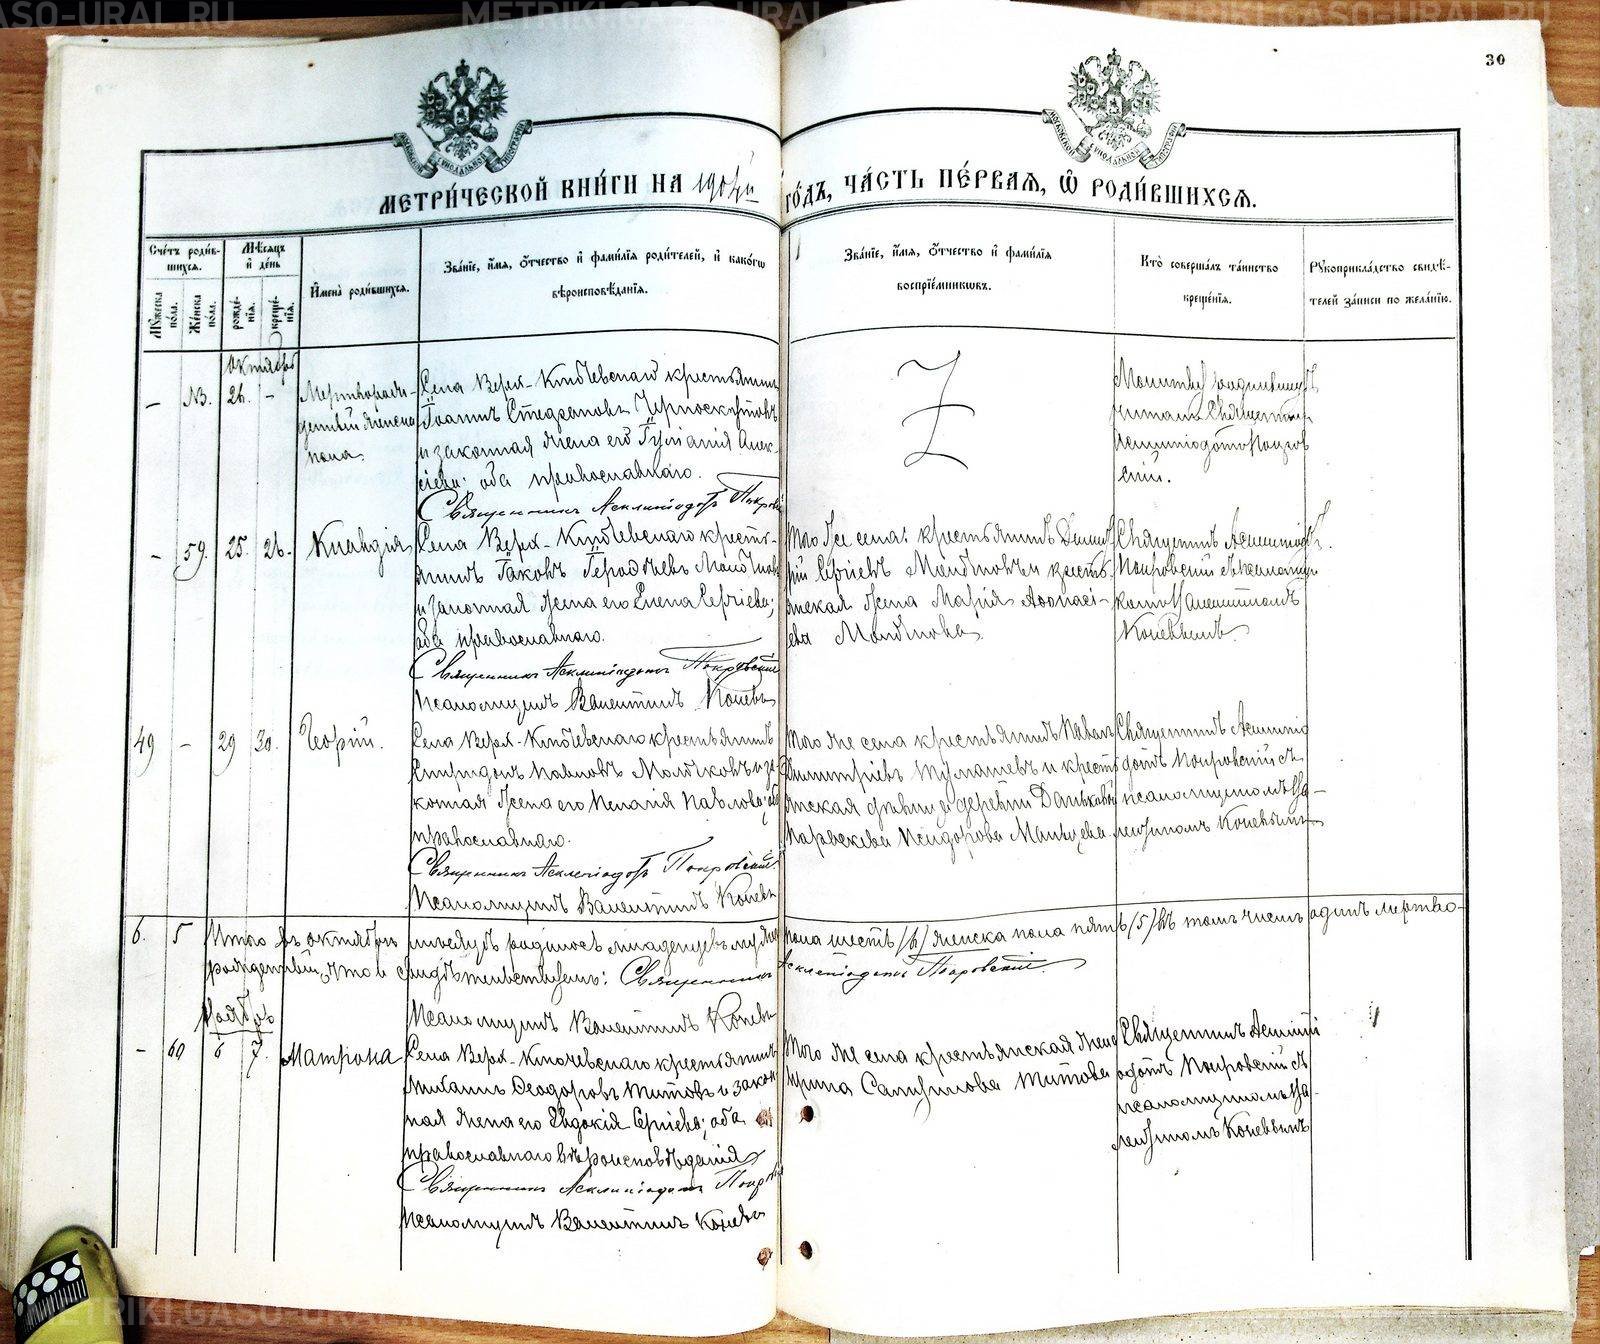 METRIKI.GASO-URAL.RU
30
МОСКОВСКОЙ СѴНОДАЛЬНОЙ ТИПОГРАФІИ
МОСКОВСКОЙ СѴНОДАЛЬНОЙ ТИПОГРАФІИ
МЕТРИ́ЧЕСКОЙ КНИ́ГИ НА
ГО́ДЪ, ЧА́СТЬ ПЕ́РВАЯ, Ѽ РОДИ́ВШИХСЯ.
Сче́тъ роди́в-
шихся.
Мѣ́сяцъ
и҆ де́нь
Му́жеска по́ла.
Же́нска по́ла.
рожде́-
нїя.
креще́-
нїя.
И҆мена̀ роди́вшихся.
Зва́нїе, и҆́мя, ѻ҆́тчество и҆ фами́лїя роди́телей, и҆ како́гѡ
вѣроисповѣ́данїя.
Зва́нїе, и҆́мя, ѻ҆́тчество и҆ фами́лїя
воспрїе́мникѡвъ.
Кто̀ соверша́лъ та́инство
креще́нїя.
Рꙋкоприкла́дство свидѣ́-
телей за́писи по жела́нїю.
Октябрь
- №. 26. -
Мертворож-
денный женска
пола.
Села Верх-Ключевскаго крестьянинъ
Іоаннъ Стефановъ Черноскутовъ
и законная жена его Іуліанія Алек-
сіева; оба православнаго.
Священникъ Асклипіодотъ Покров
Молитву родившей
читалъ Священникъ
Асклипіодотъ Покров
скій.
- 59. 25. 26.
Клавдія
Села Верх-Ключевскаго кресть-
янинъ Іаковъ
и законная жена его Елена Сергіева;
оба православнаго.
Священникъ Асклипіодотъ Покровскій
Псаломщикъ Валентинъ Коневъ
Того же села: крестьянинъ Димит
рій Сергіевъ и кресть
янская жена Марія Аѳанасі-
ева
Священникъ Асклипіодотъ
Покровскій съ псаломщи
комъ Валентиномъ
Коневымъ.
49 - 29 30.
Георгій.
Села Верх-Ключевскаго крестьянинъ
Спиридонъ Павловъ и за-
конная жена его Пелагія Павлова; оба
православнаго.
Священникъ Асклипіодотъ Покровскій.
Псаломщикъ Валентинъ Коневъ
Того же села крестьянинъ Павелъ
Димитріевъ и кресть
янская дѣвица деревни
Параскева Исидорова
Священникъ Асклипіо
дотъ Покровскій съ
псаломщикомъ Ва-
лентиномъ Коневымъ
6. 5
Итого въ октябрѣ мѣсяцѣ родилось младенцевъ муж
пола шесть (6) женска пола пять (5) въ томъ числѣ одинъ мертво-
рожденный, что и свидѣтельствуемъ: Священникъ
Асклипіодотъ Покровскій.
Псаломщикъ Валентинъ Коневъ
Ноябрь
- 60 6 7.
Матрона
Села Верх-Ключевскаго крестьянинъ
Ѳеодоровъ Титовъ и закон
ная жена его Евдокія Сергіева; оба
православнаго вѣроисповѣданія
Священникъ Асклипіодотъ Покров
Псаломщикъ Валентинъ Коневъ
Того же села крестьянская жена
Ирина Титова
Священникъ Асклипі
одотъ Покровскій съ
псаломщикомъ Ва-
лентиномъ Коневымъ
METRIKI.GASO-URAL.RU